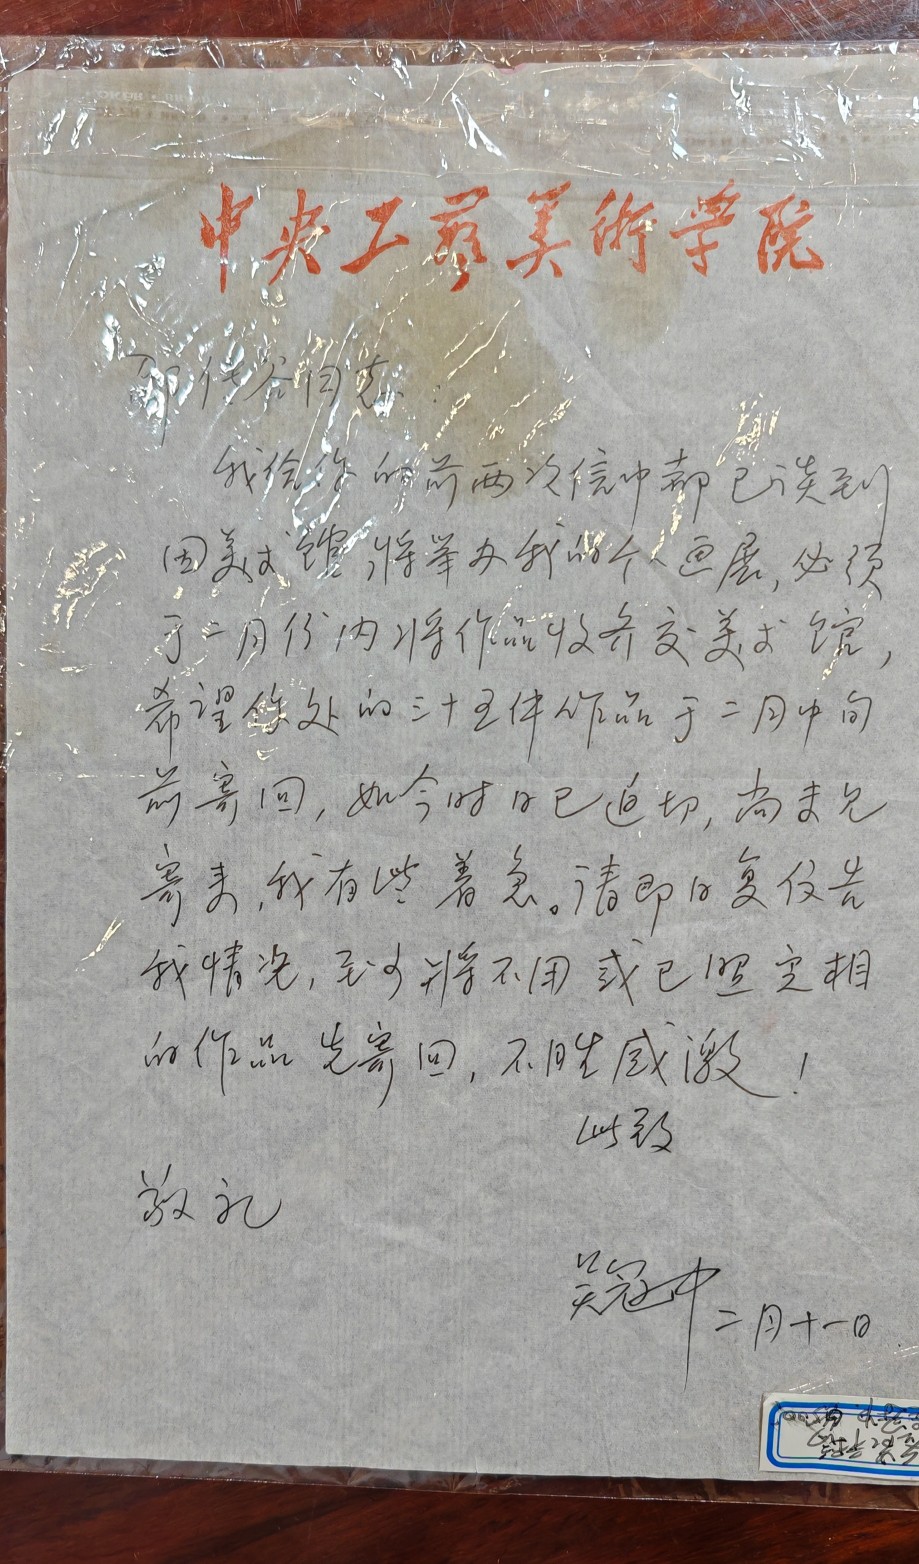 中央工艺美術学院
邵传谷同志:
我给你的前两次信中都已谈到
因美术馆将举办我的个人画展,必须
于二月份内将作品收齐交美术馆,
希望你处的三十五件作品于二月中旬
前寄回,如今时日已迫切,尚未见
寄来,我有些着急。请即日复信告
我情况,至少将不用或已照完相
的作品先寄回,不胜感激!
此致
敬礼
吴冠中 二月十一日